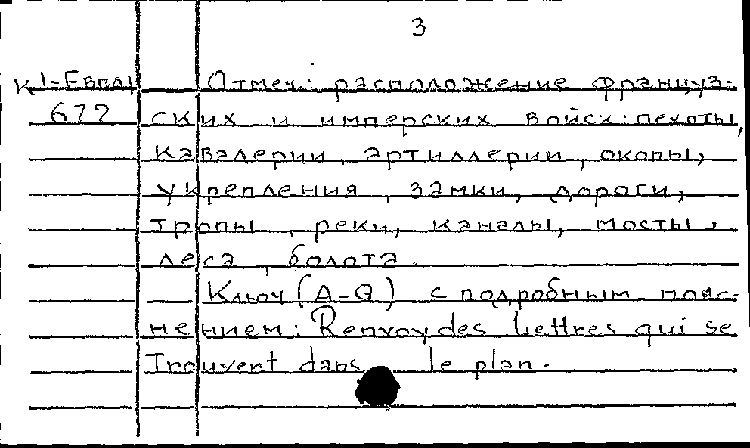 3
К 1-Европ Отмеч.: расположение француз-
677 ских и имперских войск: пехоты,
кавалерии, артиллерии, окопы,
укрепления, замки, дороги,
тропы, реки, каналы, мосты,
леса, болота.
Ключ (A-Q) с подробным пояс-
нением: Renvoy des lettres qui se
Trouvent dans le plan.